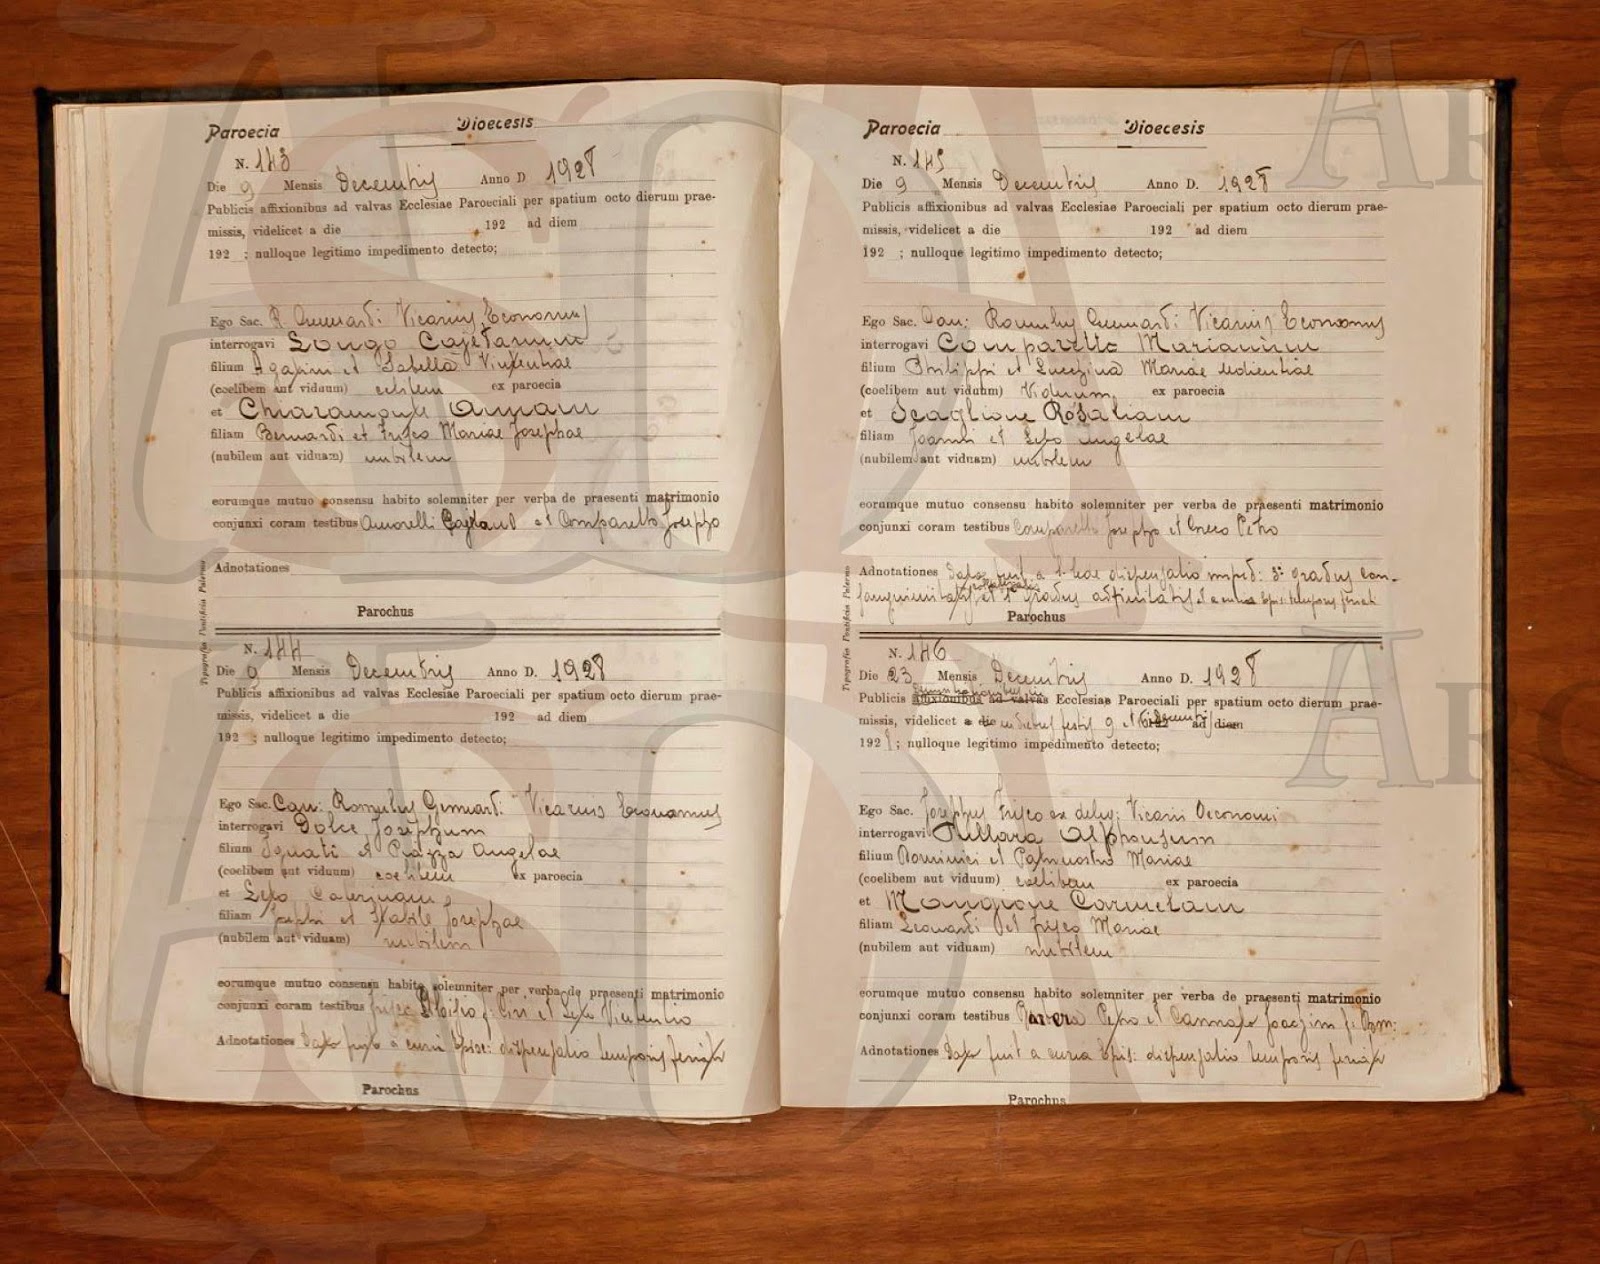 Paroecia Dioecesis
N. 143
Die 9 Mensis Decembris Anno D. 1928
Publicis affixionibus ad valvas Ecclesiae Paroeciali per spatium octo dierum prae-
missis, videlicet a die 192 ad diem
192 ; nulloque legitimo impedimento detecto;
Ego Sac. R. Gennardi: Vicarius Economus
interrogavi Longo Cajetanum
filium Agapini et Isabella Vincentiae
(coelibem aut viduum) celibem ex paroecia
et Chiaramonte Annam
filiam Bernardi et Frisco Mariae Josephae
(nubilem aut viduam) nubilem
eorumque mutuo consensu habito solemniter per verba de praesenti matrimonio
conjunxi coram testibus Amorelli Cajetano et Comparetto Josepho
Adnotationes
Parochus
Typografia Pontificia Palermo
N. 144
Die 9 Mensis Decembris Anno D. 1928
Publicis affixionibus ad valvas Ecclesiae Paroeciali per spatium octo dierum prae-
missis, videlicet a die 192 ad diem
192 ; nulloque legitimo impedimento detecto;
Ego Sac. Can: Romulus Gennardi: Vicarius Economus
interrogavi Dolce Josephum
filium Ignati et Piazza Angelae
(coelibem aut viduum) coelibem ex paroecia
et Caterinam
filiam Josephi et Stabile Josephae
(nubilem aut viduam) nubilem
eorumque mutuo consensu habito solemniter per verba de praesenti matrimonio
conjunxi coram testibus Frisco et Vincentio
Adnotationes a curia dispensatio temporis feriati
Parochus
Paroecia Dioecesis
N. 145
Die 9 Mensis Decembris Anno D. 1928
Publicis affixionibus ad valvas Ecclesiae Paroeciali per spatium octo dierum prae-
missis, videlicet a die 192 ad diem
192 ; nulloque legitimo impedimento detecto;
Ego Sac. Can: Romulus Gennardi: Vicarius Economus
interrogavi Comparetto Marianum
filium Philippi et Mariae
(coelibem aut viduum) Viduum ex paroecia
et Scaglione Rosaliam
filiam Joanni et Angelae
(nubilem aut viduam) nubilem
eorumque mutuo consensu habito solemniter per verba de praesenti matrimonio
conjunxi coram testibus Comparetto Josepho et Greco Petro
Adnotationes fuit a dispensatio imped: 3i gradus con-
sanguinitatis et gradus affinitatis temporis feriati
Parochus
Typografia Pontificia Palermo
N. 146
Die 23 Mensis Decembris Anno D. 1928
Publicis affixionibus ad valvas Ecclesiae Paroeciali per spatium octo dierum prae-
missis, videlicet a die festis 9 et 16 ad diem
192 ; nulloque legitimo impedimento detecto;
Ego Sac. Josephus Frisco ex deleg: Vicarii Oeconomi
interrogavi Tullara Alphonsum
filium Dominici et Patrnostro Mariae
(coelibem aut viduum) coelibem ex paroecia
et Mangione Carmelam
filiam Leonardi et Frisco Mariae
(nubilem aut viduam) nubilem
eorumque mutuo consensu habito solemniter per verba de praesenti matrimonio
conjunxi coram testibus et Joachim
Adnotationes fuit a curia Epis: dispensatio temporis feriati
Parochus